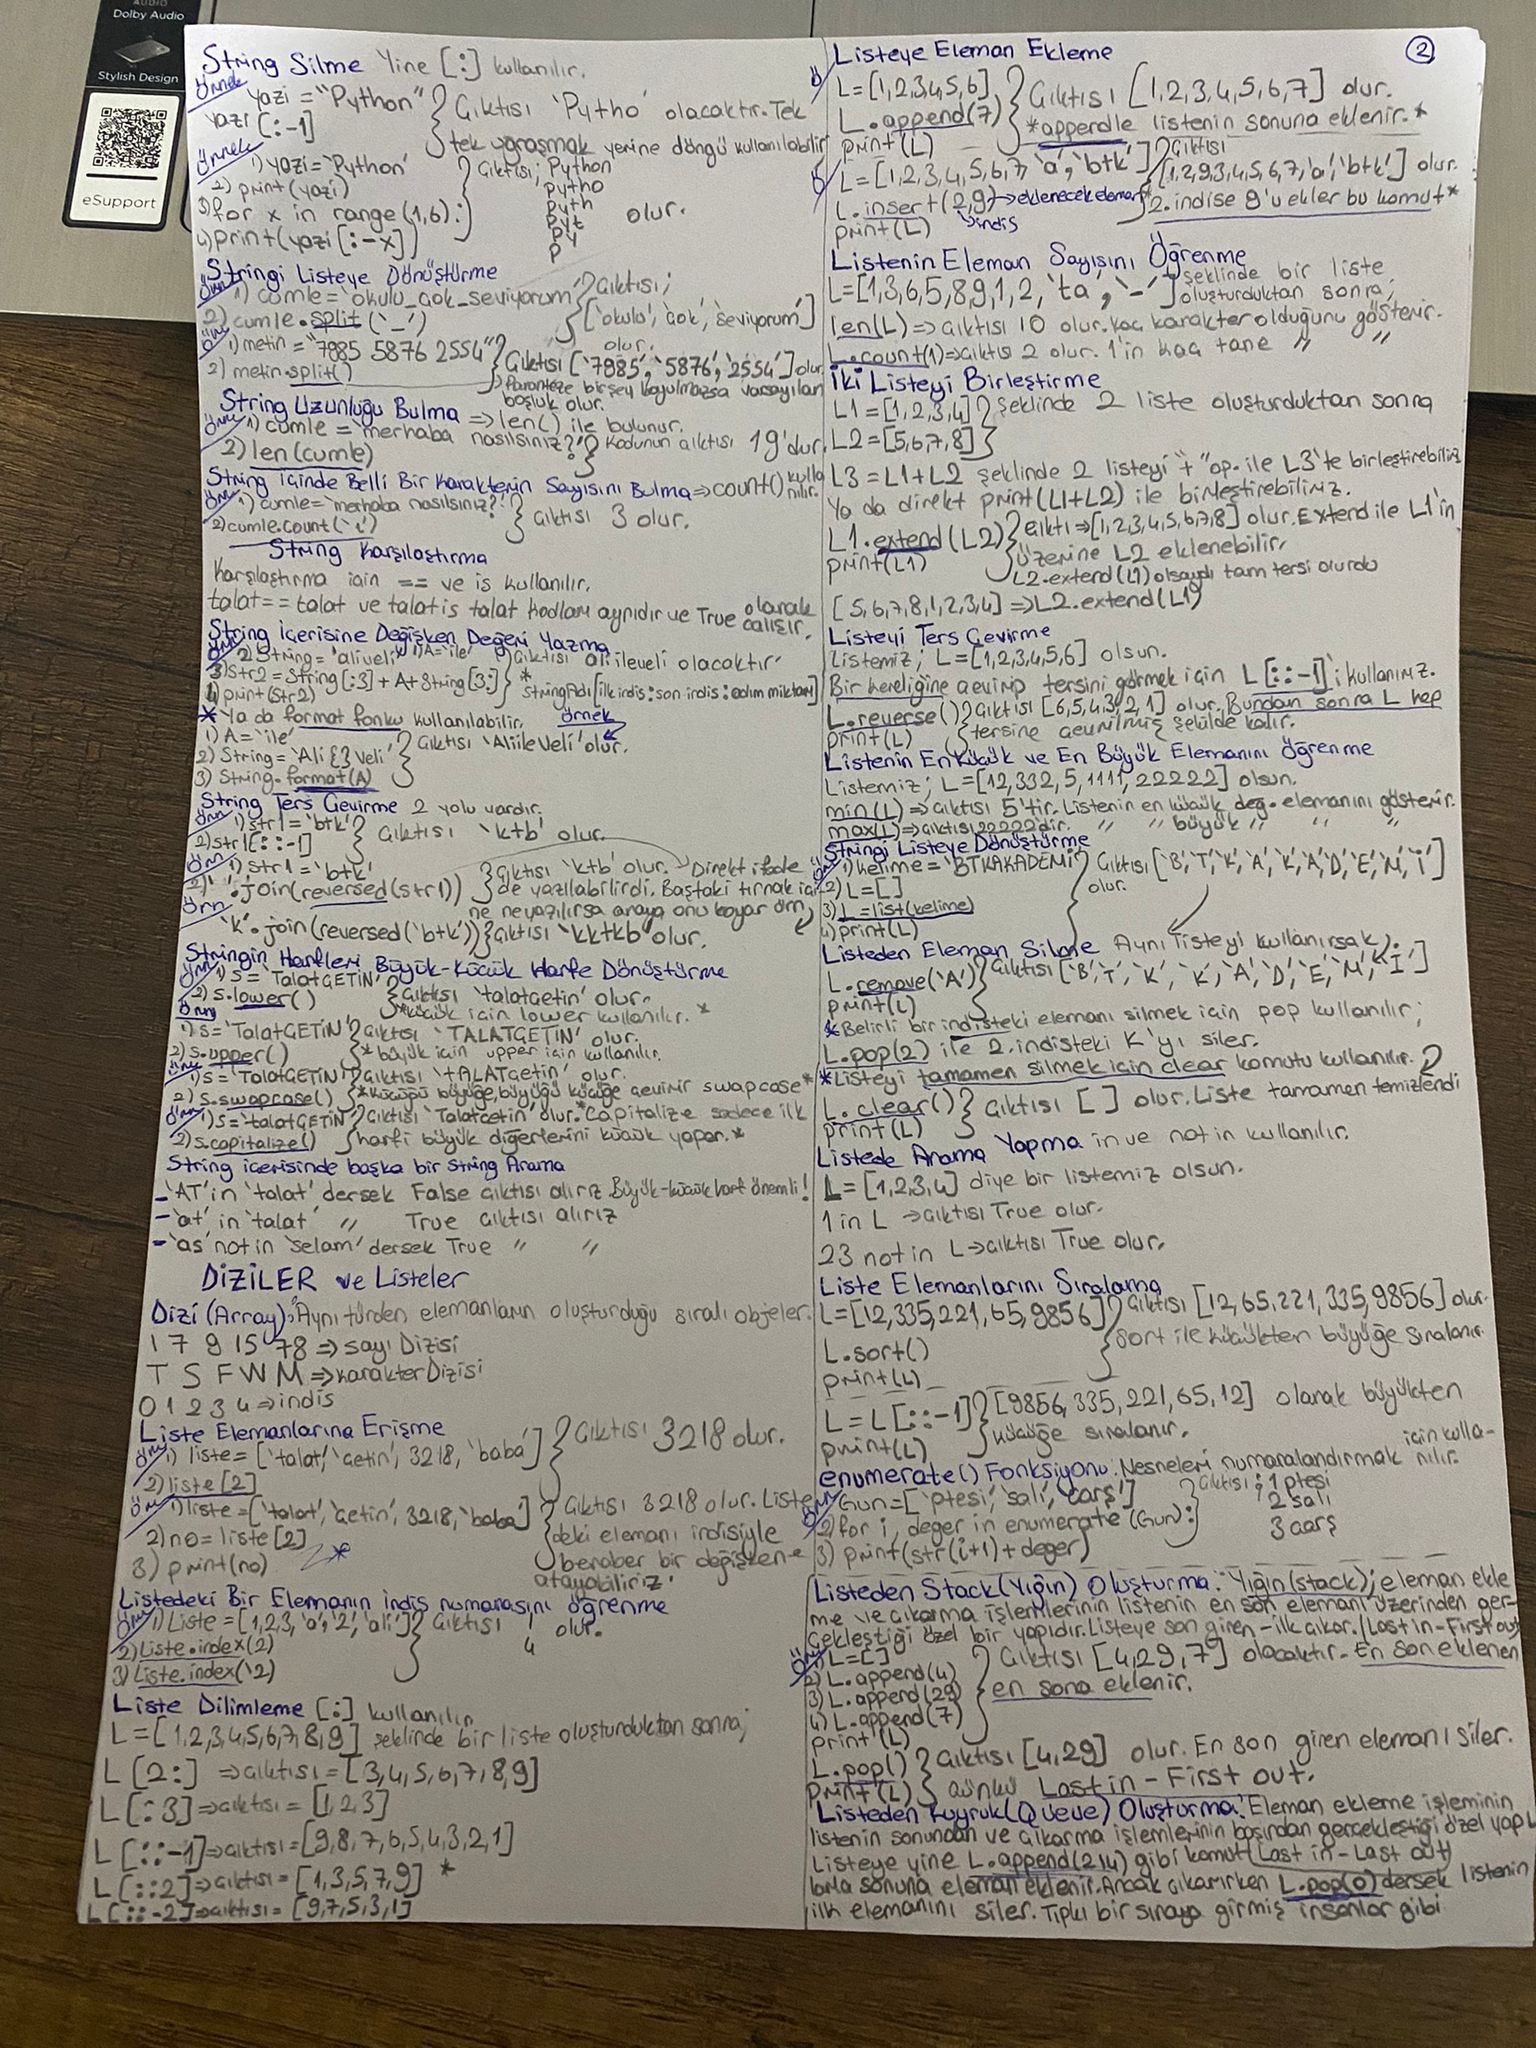 AUDIO
Dolby Audio
Stylish Design
eSupport
String Silme Yine [:] kullanılır.
Örnek
yazi = "Python"
yazi [:-1]
Çıktısı 'Pytho' olacaktır. Tek
tek uğraşmak yerine döngü kullanılabilir
Örnek
1) yazi = 'Python'
2) print(yazi)
3) for x in range (1,6):
4) print(yazi [:-x])
Çıktısı; Python
Pytho
Pyth
Pyt
Py
P
olur.
Stringi Listeye Dönüştürme
Örn
1) cumle = 'okulu_çok_seviyorum'
2) cumle.split('_')
Çıktısı;
['okulu', 'çok', 'seviyorum']
olur.
Örn
1) metin = "7985 5876 2554"
2) metin.split()
Çıktısı ['7985', '5876', '2554'] olur
Paranteze birşey koyulmazsa varsayılan
boşluk olur.
String Uzunluğu Bulma => len() ile bulunur.
Örn
1) cumle = 'merhaba nasılsınız?'
2) len(cumle)
Kodunun çıktısı 19'dur.
String içinde Belli Bir Karakterin Sayısını Bulma => count() kulla
nılır.
Örn
1) cumle = 'merhaba nasılsınız?'
2) cumle.count('ı')
Çıktısı 3 olur.
String Karşılaştırma
Karşılaştırma için == ve is kullanılır.
talat == talat ve talat is talat kodları aynıdır ve True olarak
çalışır.
String içerisine Değişken Değeri Yazma
Örn
1) A = 'ile'
2) String = 'aliveli'
3) Str2 = String[:3] + A + String[3:]
4) print(Str2)
Çıktısı aliileveli olacaktır
* StringAdı [ilk indis : son indis : adım miktarı]
* Ya da format fonku kullanılabilir. örnek
1) A = 'ile'
2) String = 'Ali {} Veli'
3) String.format(A)
Çıktısı 'Ali ile Veli' olur.
String Ters Çevirme 2 yolu vardır.
Örn
1) str1 = 'btk'
2) str1[::-1]
Çıktısı 'ktb' olur.
Örn
1) str1 = 'btk'
2) ' '.join(reversed(str1))
Çıktısı 'ktb' olur. Direkt ifade
de yazılabilirdi. Baştaki tırnak içi-
ne ne yazılırsa araya onu koyar örn,
Örn
'k'.join(reversed('btk'))
Çıktısı 'kktkb' olur.
Stringin Harfleri Büyük-Küçük Harfe Dönüştürme
Örn
1) S = 'TalatÇETİN'
2) S.lower()
Çıktısı 'talatçetin' olur.
* Küçük için lower kullanılır. *
Örn
1) S = 'TalatÇETİN'
2) S.upper()
Çıktısı 'TALATÇETİN' olur.
* büyük için upper için kullanılır.
Örn
1) S = 'TalatÇETİN'
2) S.swapcase()
Çıktısı 'tALATçetin' olur.
* küçüğü büyüğe, büyüğü küçüğe çevirir swapcase *
Örn
1) S = 'talatÇETİN'
2) S.capitalize()
Çıktısı 'Talatçetin' olur. * Capitalize sadece ilk
harfi büyük diğerlerini küçük yapar. *
String içerisinde başka bir String Arama
- 'AT' in 'talat' dersek False çıktısı alırız. Büyük-küçük harf önemli!
- 'at' in 'talat' " True çıktısı alırız
- 'as' not in 'selam' dersek True " "
DİZİLER ve Listeler
Dizi (Array): Aynı türden elemanların oluşturduğu sıralı objeler.
1 7 9 15 78 => sayı Dizisi
T S F W M => karakter Dizisi
0 1 2 3 4 => indis
Liste Elemanlarına Erişme
Örn
1) liste = ['talat', 'çetin', 3218, 'baba']
2) liste [2]
Çıktısı 3218 olur.
Örn
1) liste = ['talat', 'çetin', 3218, 'baba']
2) no = liste [2]
3) print(no)
Çıktısı 3218 olur. Liste
deki elemanı indisiyle
beraber bir değişkene
atayabiliriz.
Listedeki Bir Elemanın indis numarasını öğrenme
Örn
1) Liste = [1,2,3,'a','2','ali']
2) Liste.index(2)
3) Liste.index('2)
Çıktısı 1
4
olur.
Liste Dilimleme [:] kullanılır.
L = [1,2,3,4,5,6,7,8,9] şeklinde bir liste oluşturduktan sonra;
L [2:] => çıktısı = [3,4,5,6,7,8,9]
L [:3] => çıktısı = [1,2,3]
L [::-1] => çıktısı = [9,8,7,6,5,4,3,2,1]
L [::2] => çıktısı = [1,3,5,7,9] *
L [::-2] => çıktısı = [9,7,5,3,1]
2
Listeye Eleman Ekleme
Ö
L = [1,2,3,4,5,6]
L.append(7)
print(L)
Çıktısı [1,2,3,4,5,6,7] olur.
* appendle listenin sonuna eklenir. *
Ö
L = [1,2,3,4,5,6,7,'a','btk']
L.insert(2,9) → eklenecek eleman
indis
print(L)
Çıktısı
[1,2,9,3,4,5,6,7,'a','btk'] olur.
2. indise 9'u ekler bu komut *
Listenin Eleman Sayısını Öğrenme
L = [1,3,6,5,8,9,1,2,'ta','-'] şeklinde bir liste
oluşturduktan sonra;
len(L) => çıktısı 10 olur. kaç karakter olduğunu gösterir.
L.count(1) => çıktısı 2 olur. 1'in kaç tane " "
İki Listeyi Birleştirme
L1 = [1,2,3,4]
L2 = [5,6,7,8]
şeklinde 2 liste oluşturduktan sonra
L3 = L1+L2 şeklinde 2 listeyi "+" op. ile L3'te birleştirebiliriz
Ya da direkt print(L1+L2) ile birleştirebiliriz.
L1.extend(L2)
print(L1)
Çıktı => [1,2,3,4,5,6,7,8] olur. Extend ile L1'in
üzerine L2 eklenebilir.
L2.extend(L1) olsaydı tam tersi olurdu
[5,6,7,8,1,2,3,4] => L2.extend(L1)
Listeyi Ters Çevirme
Listemiz; L = [1,2,3,4,5,6] olsun.
Bir kereliğine çevirip tersini görmek için L [::-1]'i kullanırız.
L.reverse()
print(L)
Çıktısı [6,5,4,3,2,1] olur. Bundan sonra L hep
tersine çevrilmiş şekilde kalır.
Listenin En Küçük ve En Büyük Elemanını Öğrenme
Listemiz; L = [12,332,5,1111,22222] olsun.
min(L) => çıktısı 5'tir. Listenin en küçük değ. elemanını gösterir.
max(L) => çıktısı 22222'dir. " " büyük " " "
Stringi Listeye Dönüştürme
Örn
1) kelime = 'BTKAKADEMİ'
2) L = []
3) L = list(kelime)
4) print(L)
Çıktısı ['B','T','K','A','K','A','D','E','M','İ']
olur.
Listeden Eleman Silme Aynı listeyi kullanırsak;
L.remove('A')
print(L)
Çıktısı ['B','T','K','K','A','D','E','M','İ']
* Belirli bir indisteki elemanı silmek için pop kullanılır;
L.pop(2) ile 2. indisteki K'yı siler.
* Listeyi tamamen silmek için clear komutu kullanılır.
L.clear()
print(L)
Çıktısı [ ] olur. Liste tamamen temizlendi
Listede Arama Yapma in ve not in kullanılır.
L = [1,2,3,4] diye bir listemiz olsun.
1 in L → çıktısı True olur.
23 not in L → çıktısı True olur.
Liste Elemanlarını Sıralama
L = [12,335,221,65,9856]
L.sort()
print(L)
Çıktısı [12,65,221,335,9856] olur.
Sort ile küçükten büyüğe sıralanır.
L = L [::-1]
print(L)
[9856,335,221,65,12] olarak büyükten
küçüğe sıralanır.
enumerate() Fonksiyonu: Nesneleri numaralandırmak için kulla-
nılır.
Örn
Gun = ['ptesi', 'salı', 'çarş']
2) for i, deger in enumerate (Gun):
3) print(str(i+1) + deger)
Çıktısı; 1 ptesi
2 salı
3 çarş
Listeden Stack (Yığın) Oluşturma: Yığın (stack); eleman ekle
me ve çıkarma işlemlerinin listenin en son elemanı üzerinden ger-
çekleştiği özel bir yapıdır. Listeye son giren - ilk çıkar. / Last in - First out
Örn
1) L = []
2) L.append(4)
3) L.append(29)
4) L.append(7)
print(L)
Çıktısı [4,29,7] olacaktır. En son eklenen
en sona eklenir.
L.pop()
print(L)
Çıktısı [4,29] olur. En son giren elemanı siler.
Çünkü Last in - First out.
Listeden Kuyruk (Queue) Oluşturma: Eleman ekleme işleminin
listenin sonundan ve çıkarma işlemlerinin başından gerçekleştiği özel yapı
Listeye yine L.append(214) gibi komut (Last in - Last out)
larla sonuna eleman eklenir. Ancak çıkarırken L.pop(0) dersek listenin
ilk elemanını siler. Tıpkı bir sıraya girmiş insanlar gibi